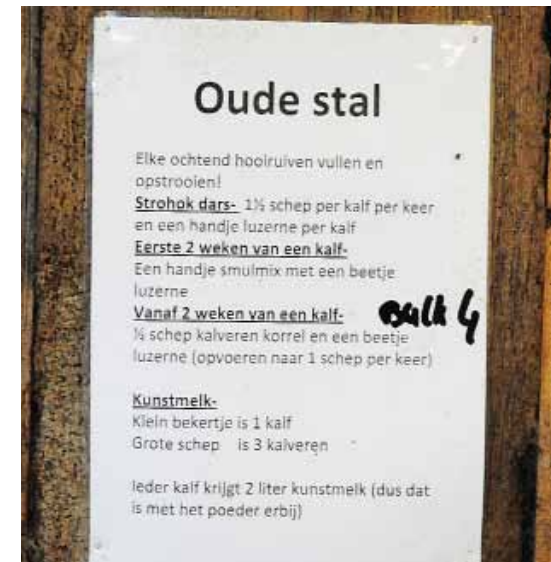 Oude stal
Elke ochtend hooiruiven vullen en
opstrooien!
Strohok dars- 1½ schep per kalf per keer
en een handje luzerne per kalf
Eerste 2 weken van een kalf-
Een handje smulmix met een beetje
luzerne
Vanaf 2 weken van een kalf-
½ schep kalveren korrel en een beetje
luzerne (opvoeren naar 1 schep per keer)
Kunstmelk-
Klein bekertje is 1 kalf
Grote schep is 3 kalveren
Ieder kalf krijgt 2 liter kunstmelk (dus dat
is met het poeder erbij)